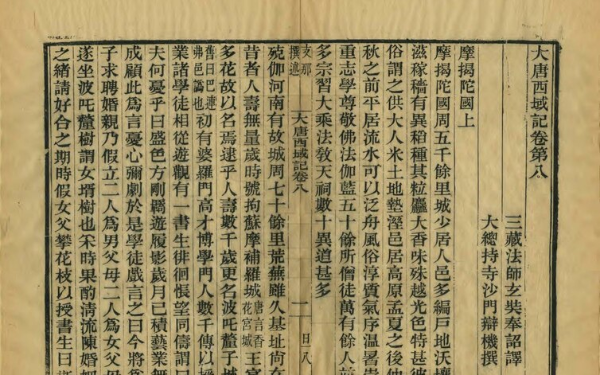 大唐西域記卷第八
三藏法師玄奘奉詔譯
大總持寺沙門辯機撰
摩揭陀國上
摩揭陀國周五千餘里城少居人邑多編戶地沃壤
滋稼穡有異稻種其粒麤大香味殊越光色特甚彼
俗謂之供大人米土地墊溼邑居高原孟夏之後仲
秋之前平居流水可以泛舟風俗淳質氣序温暑崇
重志學尊敬佛法伽藍五十餘所僧徒萬有餘人並
多宗習大乘法教天祠數十異道甚多
支那撰述
大唐西域記卷八
一
日八
殑伽河南有故城周七十餘里荒蕪雖久基址尚在
昔者人壽無量歲時號拘蘇摩補羅城唐言香花宮城王宮
多花故以名焉逮乎人壽數千歲更名波吒釐子城
舊曰巴連弗邑訛也初有婆羅門高才博學門人數千傳以授
業諸學徒相從遊觀有一書生徘徊悵望同儔謂曰
夫何憂乎曰盛色方剛羈遊履影歲月已積藝業無
成顧此為言憂心彌劇於是學徒戲言之曰今將為
子求聘婚親乃假立二人為男父母二人為女父母
遂坐波吒釐樹謂女壻樹也采時果酌清流陳婚姻
之緒請好合之期時假女父攀花枝以授書生曰